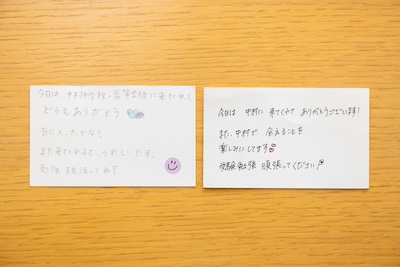 今日は、中村中学校・高等学校に来てくれて
どうもありがとう
気に入ったかな？
また来てくれると、うれしいです。
勉強 頑張ってね！
今日は 中村に 来てくれて ありがとうございます！
また、中村で 会えることを
楽しみにしてます
受験勉強 頑張ってください！